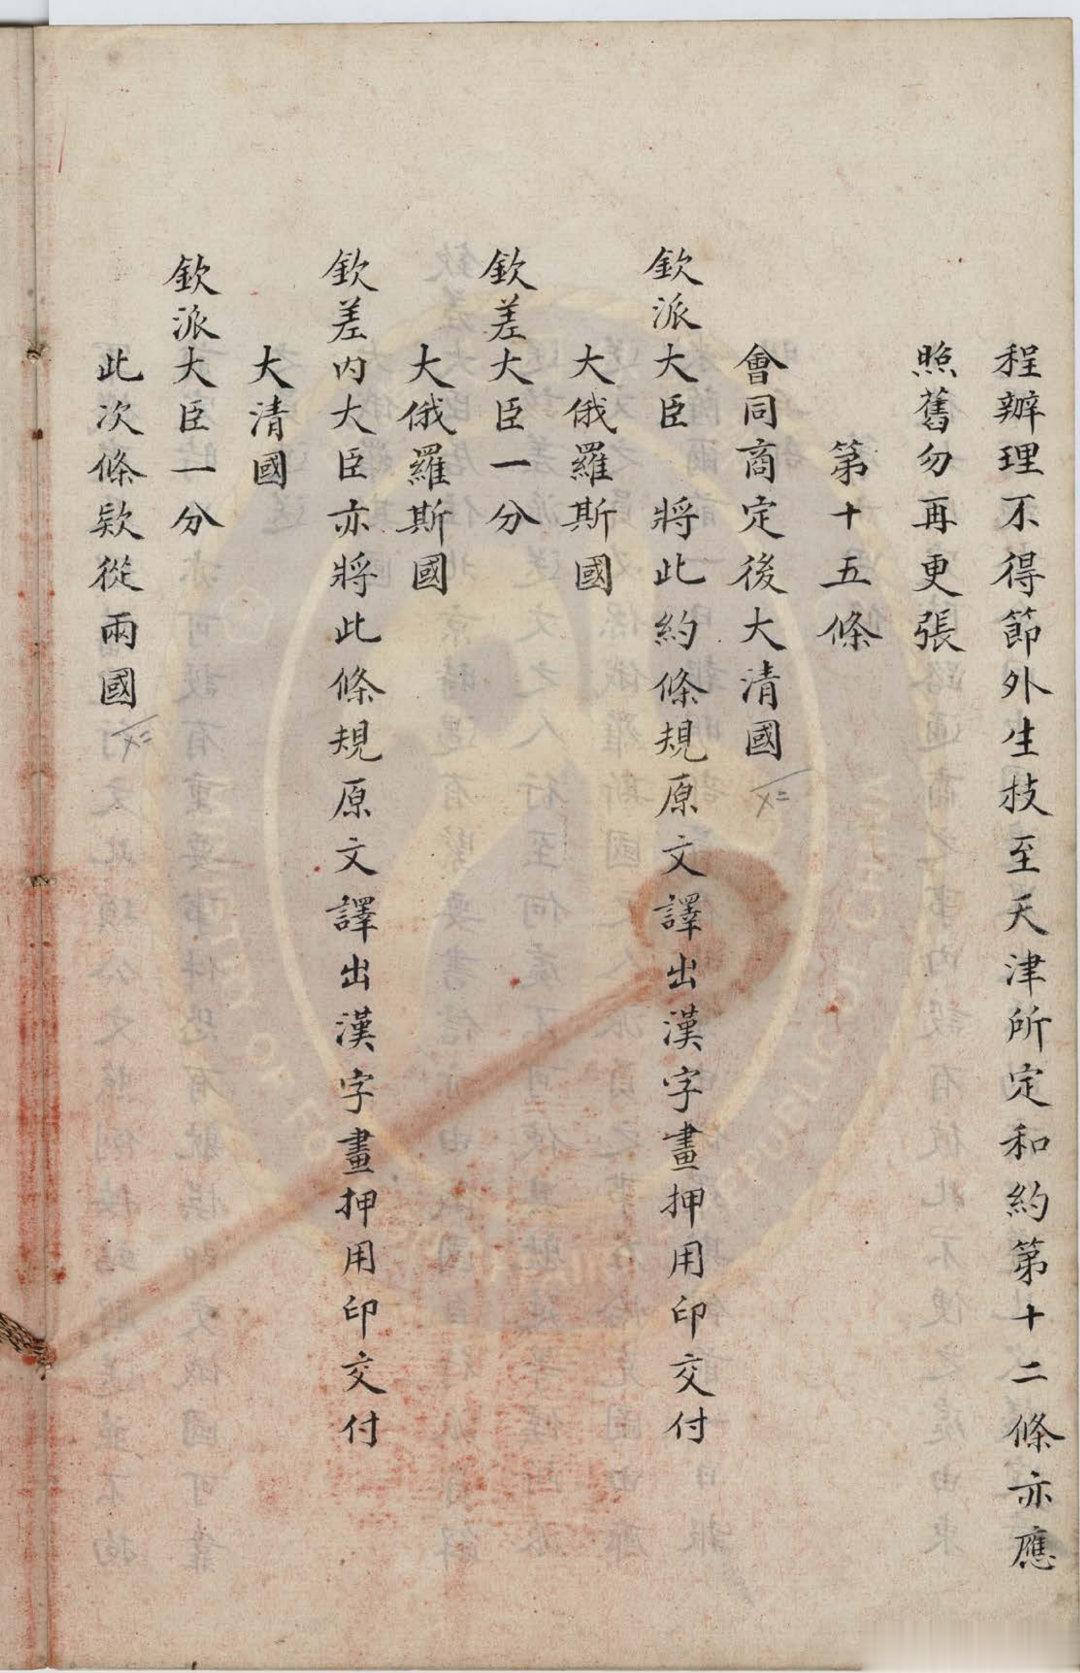 程辦理不得節外生枝至天津所定和約第十二條亦應
照舊勿再更張
第十五條
會同商定後大清國
欽派大臣 將此約條規原文譯出漢字畫押用印交付
大俄羅斯國
欽差大臣一分
大俄羅斯國
欽差內大臣亦將此條規原文譯出漢字畫押用印交付
大清國
欽派大臣一分
此次條欵從兩國